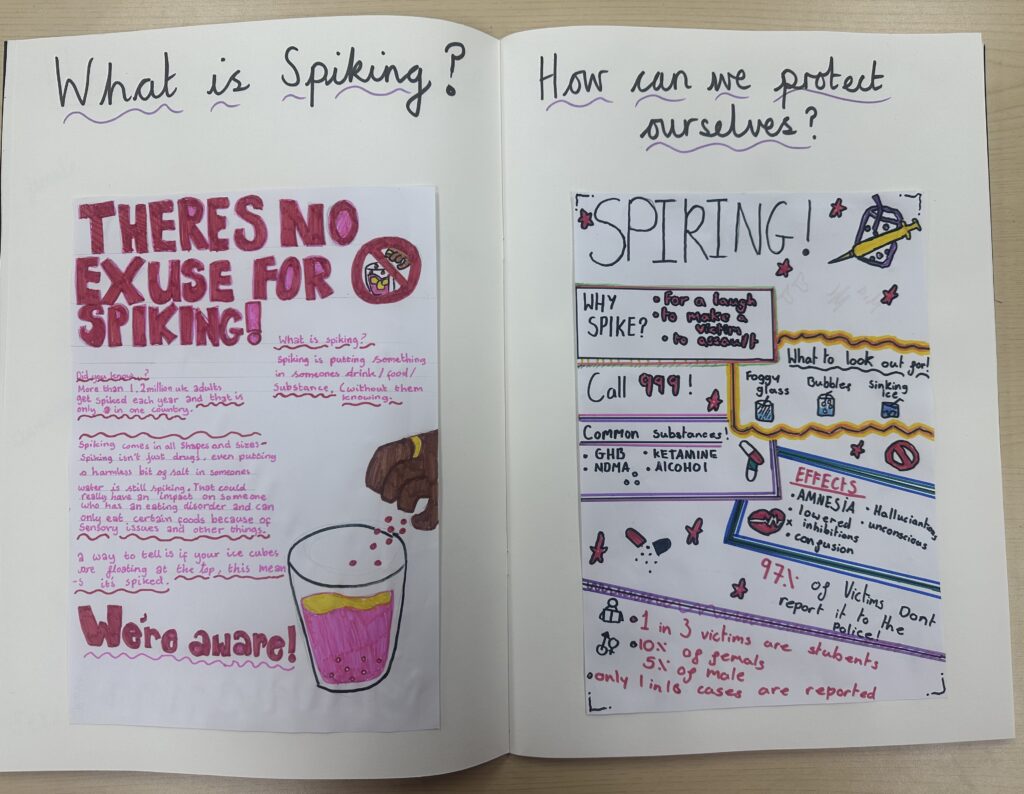 What is Spiking?
THERES NO
EXUSE FOR
SPIKING!
What is spiking?
Spiking is putting something
in someones drink/food/
substance. (without them
knowing.
Did you know...?
More than 1.2million uk adults
get spiked each year and that is
only in one country.
Spiking comes in all shapes and sizes-
Spiking isn't just drugs, even putting
a harmless bit of salt in someones
water is still spiking. That could
really have an impact on someone
who has an eating disorder and can
only eat certain foods because of
sensory issues and other things.
a way to tell is if your ice cubes
are floating at the top, this mean
-s it's spiked.
We're aware!
How can we protect
ourselves?
SPIRING!
WHY
SPIKE?
• for a laugh
• to make a
victim
• to assault
What to look out for!
Foggy
glass
Bubbles
Sinking
Ice
Call 999!
Common Substances!
• GHB
• KETAMINE
• NDMA
• ALCOHOL
EFFECTS
• AMNESIA
• Halluciantions
• lowered
inhibitions
• unconscious
• confusion
97% of Victims Dont
report it to the
Police!
• 1 in 3 victims are students
• 10% of femals
5% of male
• only 1 in 18 cases are reported